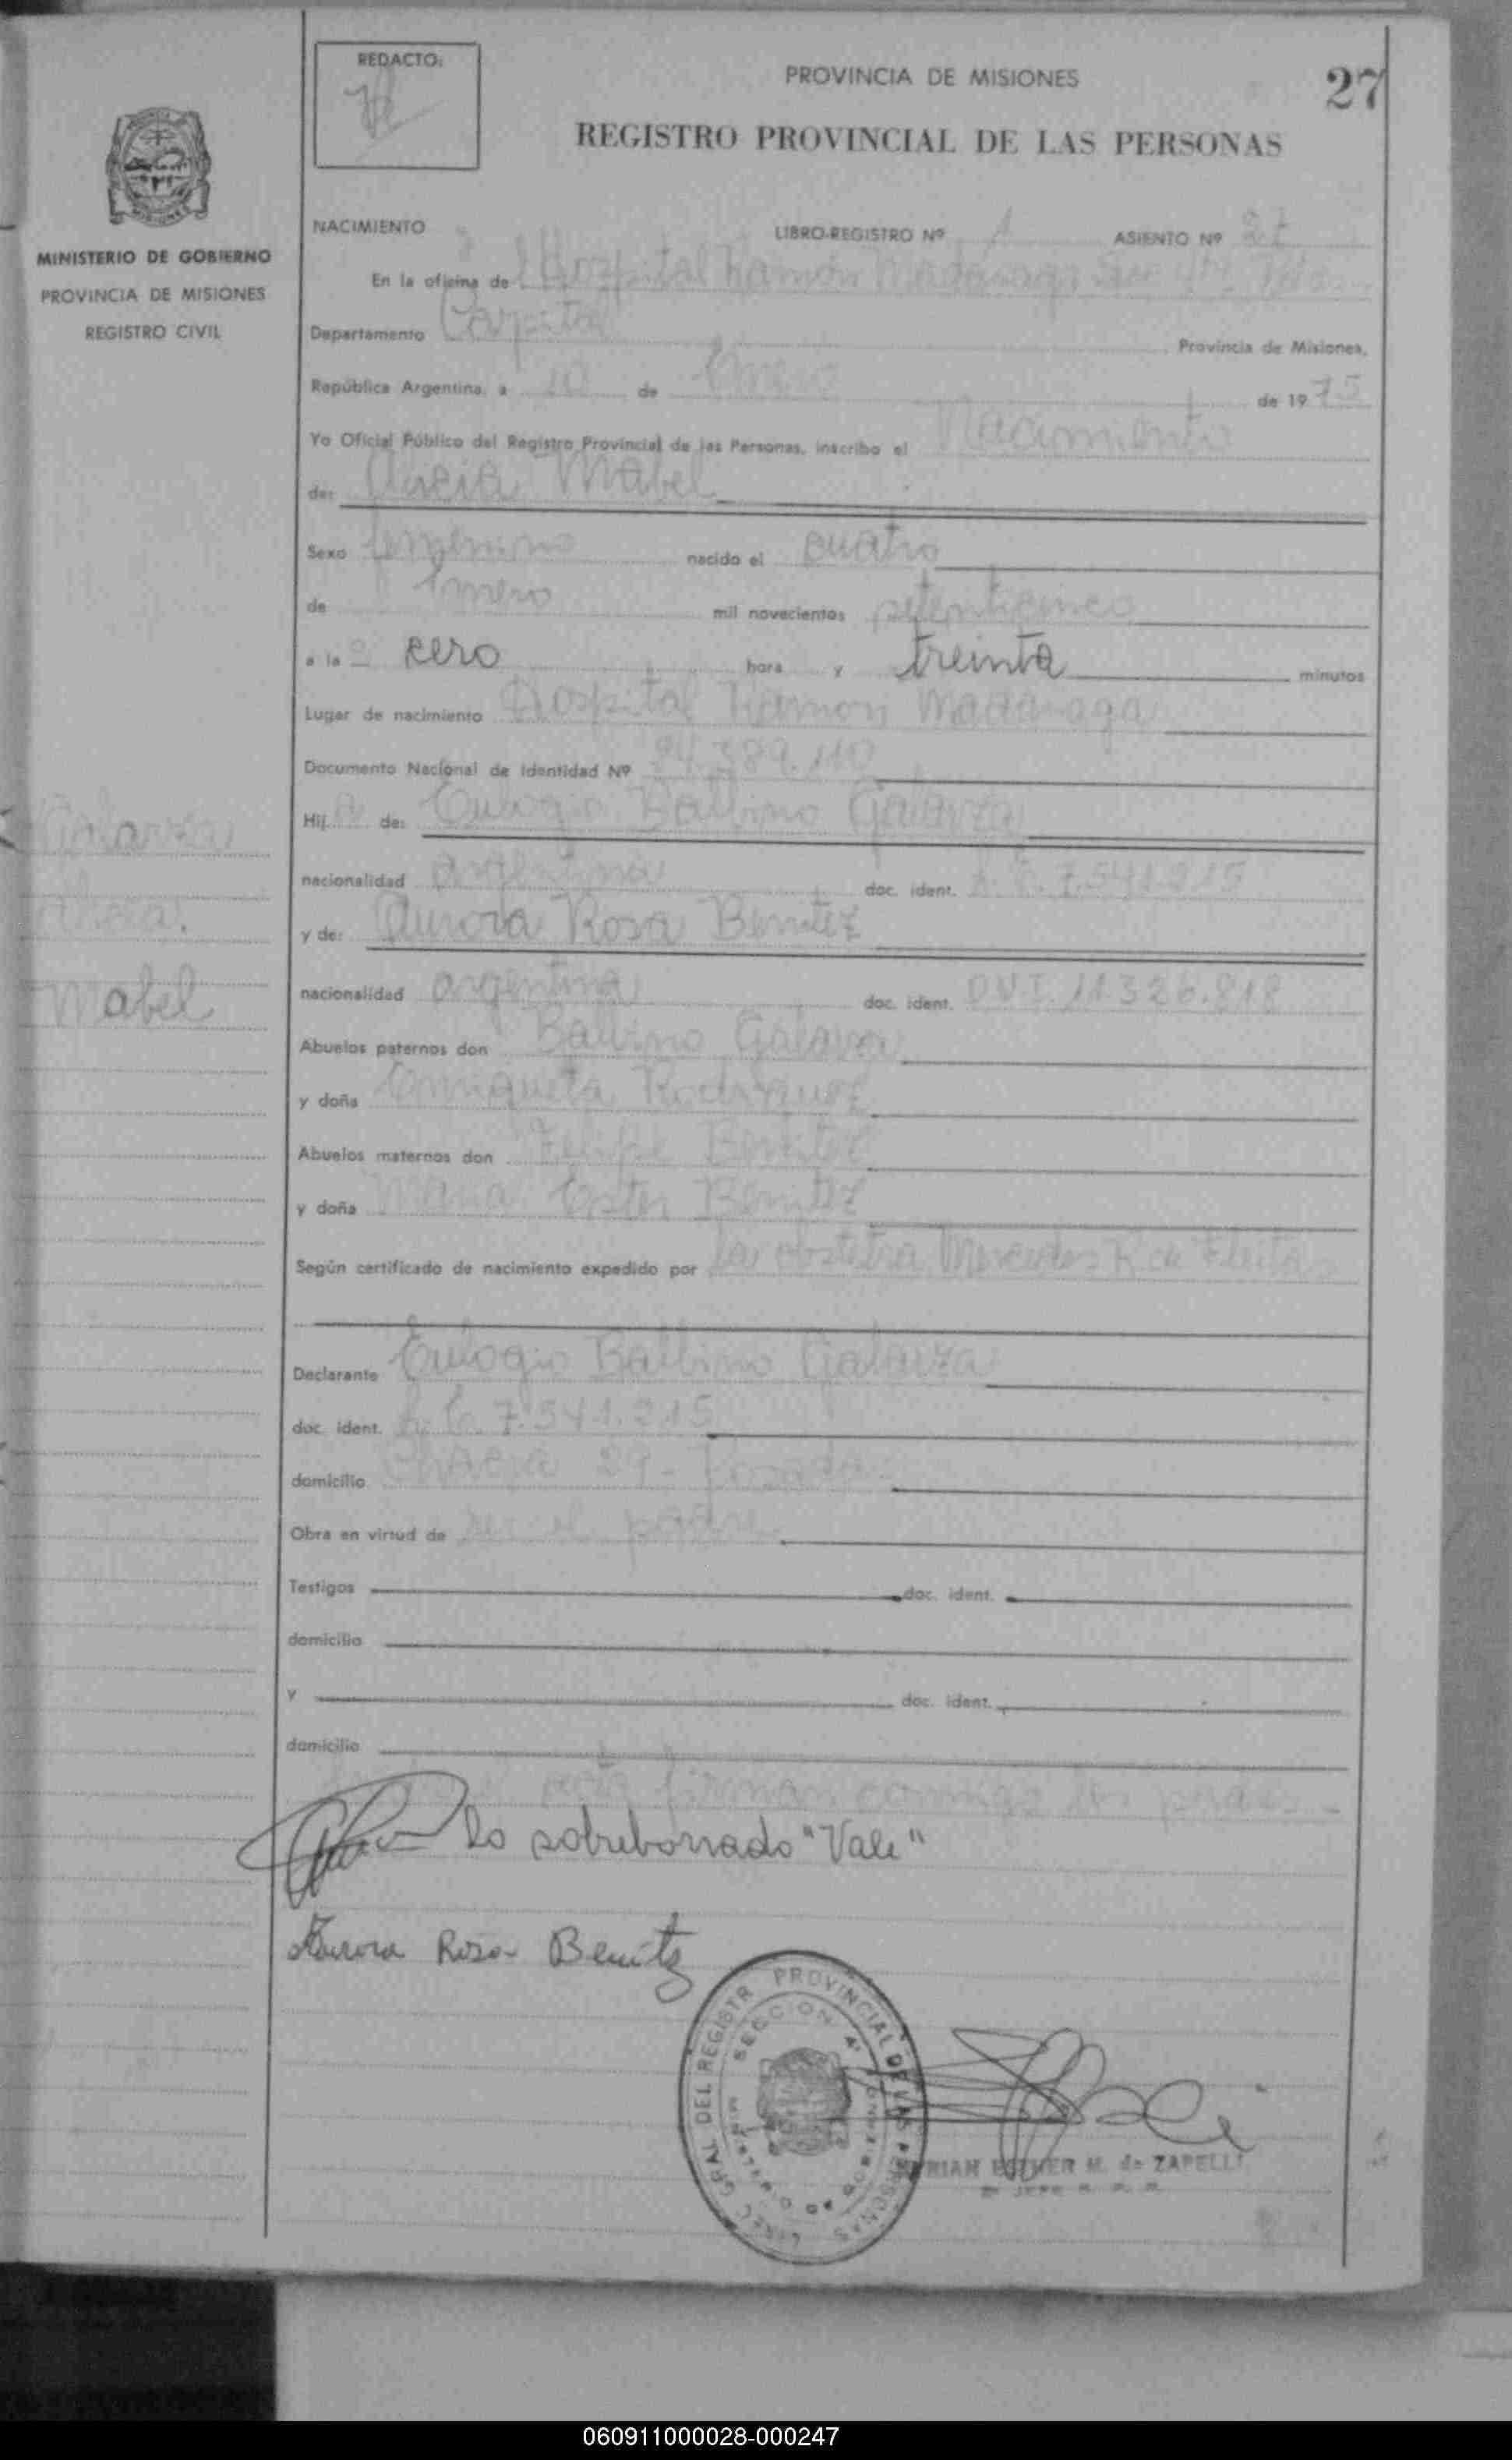 REDACTO:
PROVINCIA DE MISIONES
27
REGISTRO PROVINCIAL DE LAS PERSONAS
MINISTERIO DE GOBIERNO
PROVINCIA DE MISIONES
REGISTRO CIVIL
NACIMIENTO LIBRO-REGISTRO Nº 1 ASIENTO Nº 27
En la oficina de Hospital Ramón Madariaga
Departamento Capital Provincia de Misiones,
República Argentina, a 10 de Enero de 1975
Yo Oficial Público del Registro Provincial de las Personas, inscribo el Nacimiento
de: Alicia Mabel
Sexo femenino nacido el cuatro
de Enero mil novecientos setenticinco
a la s cero hora y treinta minutos
Lugar de nacimiento Hospital Ramon Madariaga
Documento Nacional de Identidad Nº 24.389.110
Hij a de: Eulogio Balbino Galarza
nacionalidad argentina doc. ident. L.E. 7.541.215
y de: Aurora Rosa Benitez
nacionalidad argentina doc. ident. D.N.I. 11.326.818
Galarza
Alicia
Mabel
Abuelos paternos don Balbino Galarza
y doña Enriqueta Rodriguez
Abuelos maternos don Felipe Benitez
y doña Maria Ester Benitez
Según certificado de nacimiento expedido por la obstetra Mercedes R. de Fleita
Declarante Eulogio Balbino Galarza
doc. ident. L.E. 7.541.215
domicilio Chacra 29 - Posadas
Obra en virtud de ser el padre
Testigos doc. ident.
domicilio
y doc. ident.
domicilio
acta firman conmigo los padres.-
Lo sobreborrado "Vale"
Aurora Rosa Benitez
DIREC. GRAL DEL REGISTR. PROVINCIAL DE LAS PERSONAS
SECCION 4ª
MIRIAN ESTHER M. de ZAPELLI
060911000028-000247